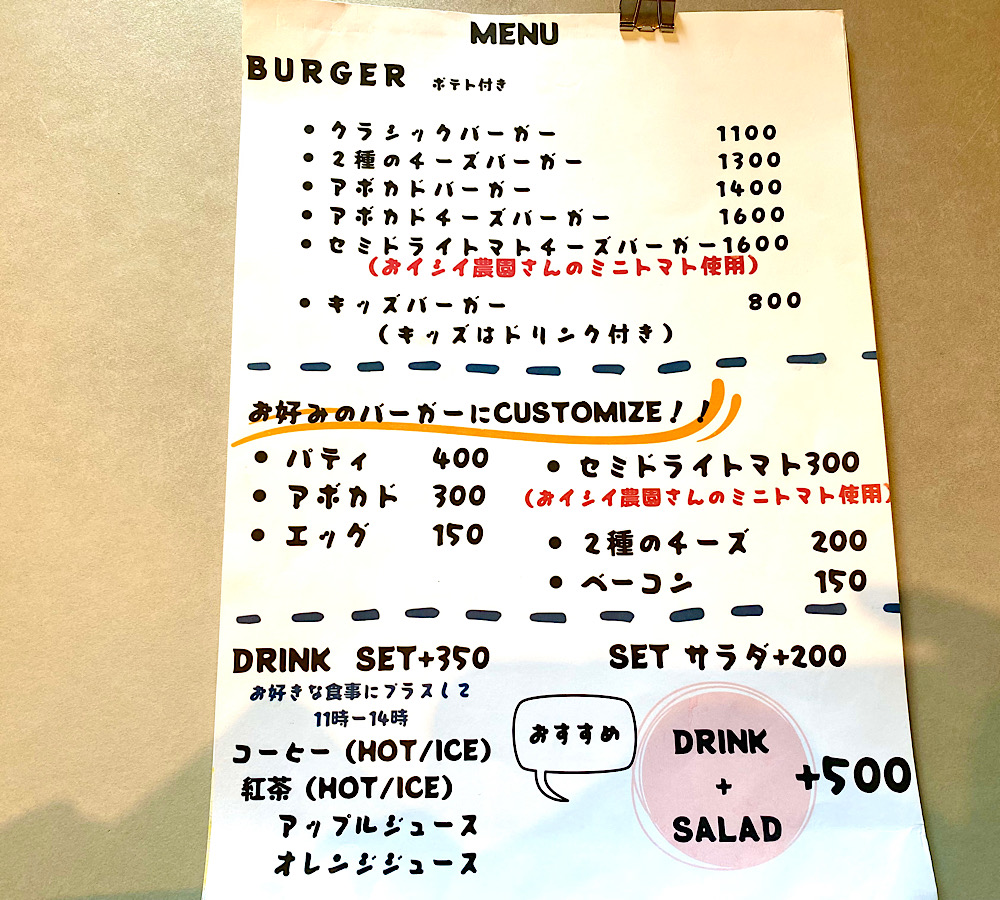 MENU
BURGER ポテト付き
• クラシックバーガー 1100
• 2種のチーズバーガー 1300
• アボカドバーガー 1400
• アボカドチーズバーガー 1600
• セミドライトマトチーズバーガー1600
(おイシイ農園さんのミニトマト使用)
• キッズバーガー 800
(キッズはドリンク付き)
お好みのバーガーにCUSTOMIZE!!
• パティ 400
• アボカド 300
• エッグ 150
• セミドライトマト300
(おイシイ農園さんのミニトマト使用)
• 2種のチーズ 200
• ベーコン 150
DRINK SET+350
お好きな食事にプラスして
11時ー14時
コーヒー(HOT/ICE)
紅茶(HOT/ICE)
アップルジュース
オレンジジュース
SET サラダ+200
おすすめ
DRINK
+
SALAD
+500